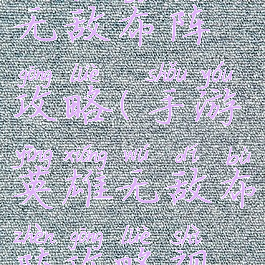 无敌布阵
gōng lüè shǒu yóu
攻略(手游
yīng xióng wú dí bù
英雄无敌布
zhèn gōng lüè shǒu